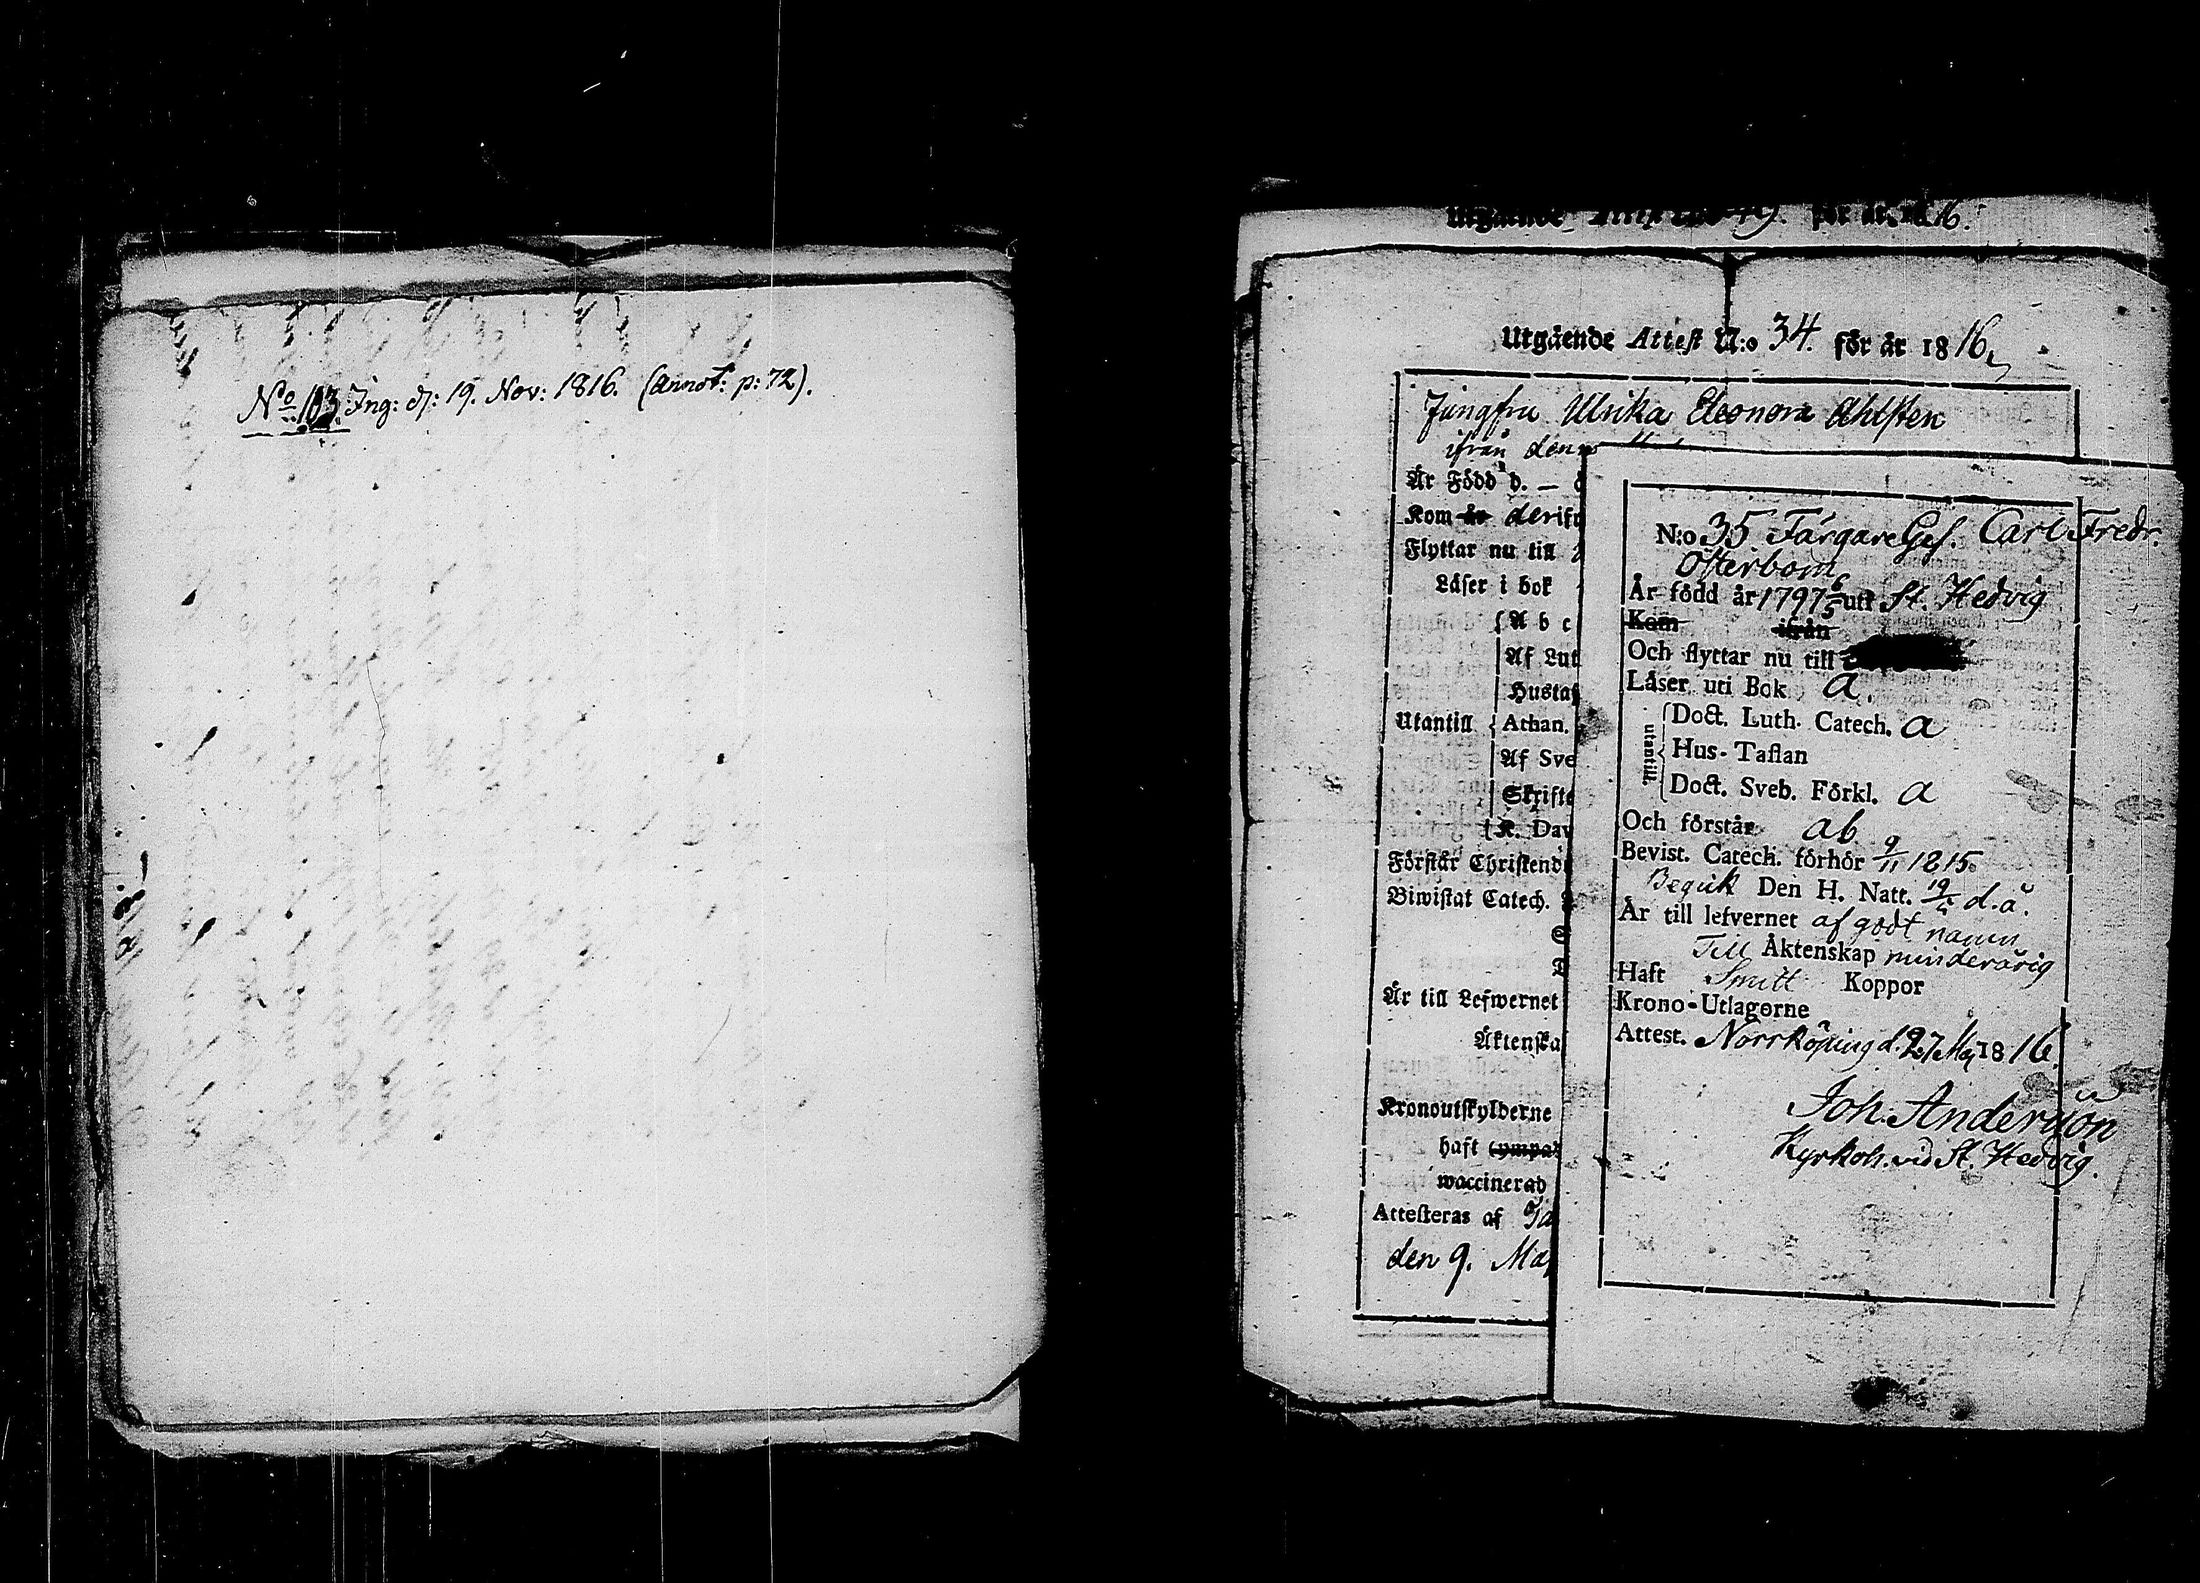 No 103. Ing: d: 19. Nov: 1816. (Annot: p: 72).
Utgående för år 1816.
Utgående Attest N:o 34. för år 1816,
Jungfru Ulrika Eleonora Ahlsten
ifrån den
År Född d. —
Kom år derifr
Flyttar nu till
Läser i bok
Utantill
A b c
Af Lut
Hustaf
Athan.
Af Sve
Skrifte
K. Dav
Förstår Christend
Biwistat Catech.
År till Lefwernet
Äktenska
Kronoutskylderne
haft
waccinerad
Attesteras af
den 9. Maj
N:o 35 Färgare Ges. Carl Fredr.
Österbom
År född år 1797 6/5 uti St. Hedvig
Kom ifrån
Och flyttar nu till
Läser uti Bok a.
utantill.
Doct. Luth. Catech. a
Hus-Taflan
Doct. Sveb. Förkl. a
Och förstår ab
Bevist. Catech. förhör 9/11 1815.
Begick Den H. Natt. 19/11 d.å.
År till lefvernet af godt namn
Till Äktenskap minderårig
Haft Smitt Koppor
Krono-Utlagorne
Attest. Norrköping d. 27 Maj 1816.
Joh. Anderson
Kyrkoh. vid St. Hedvig.